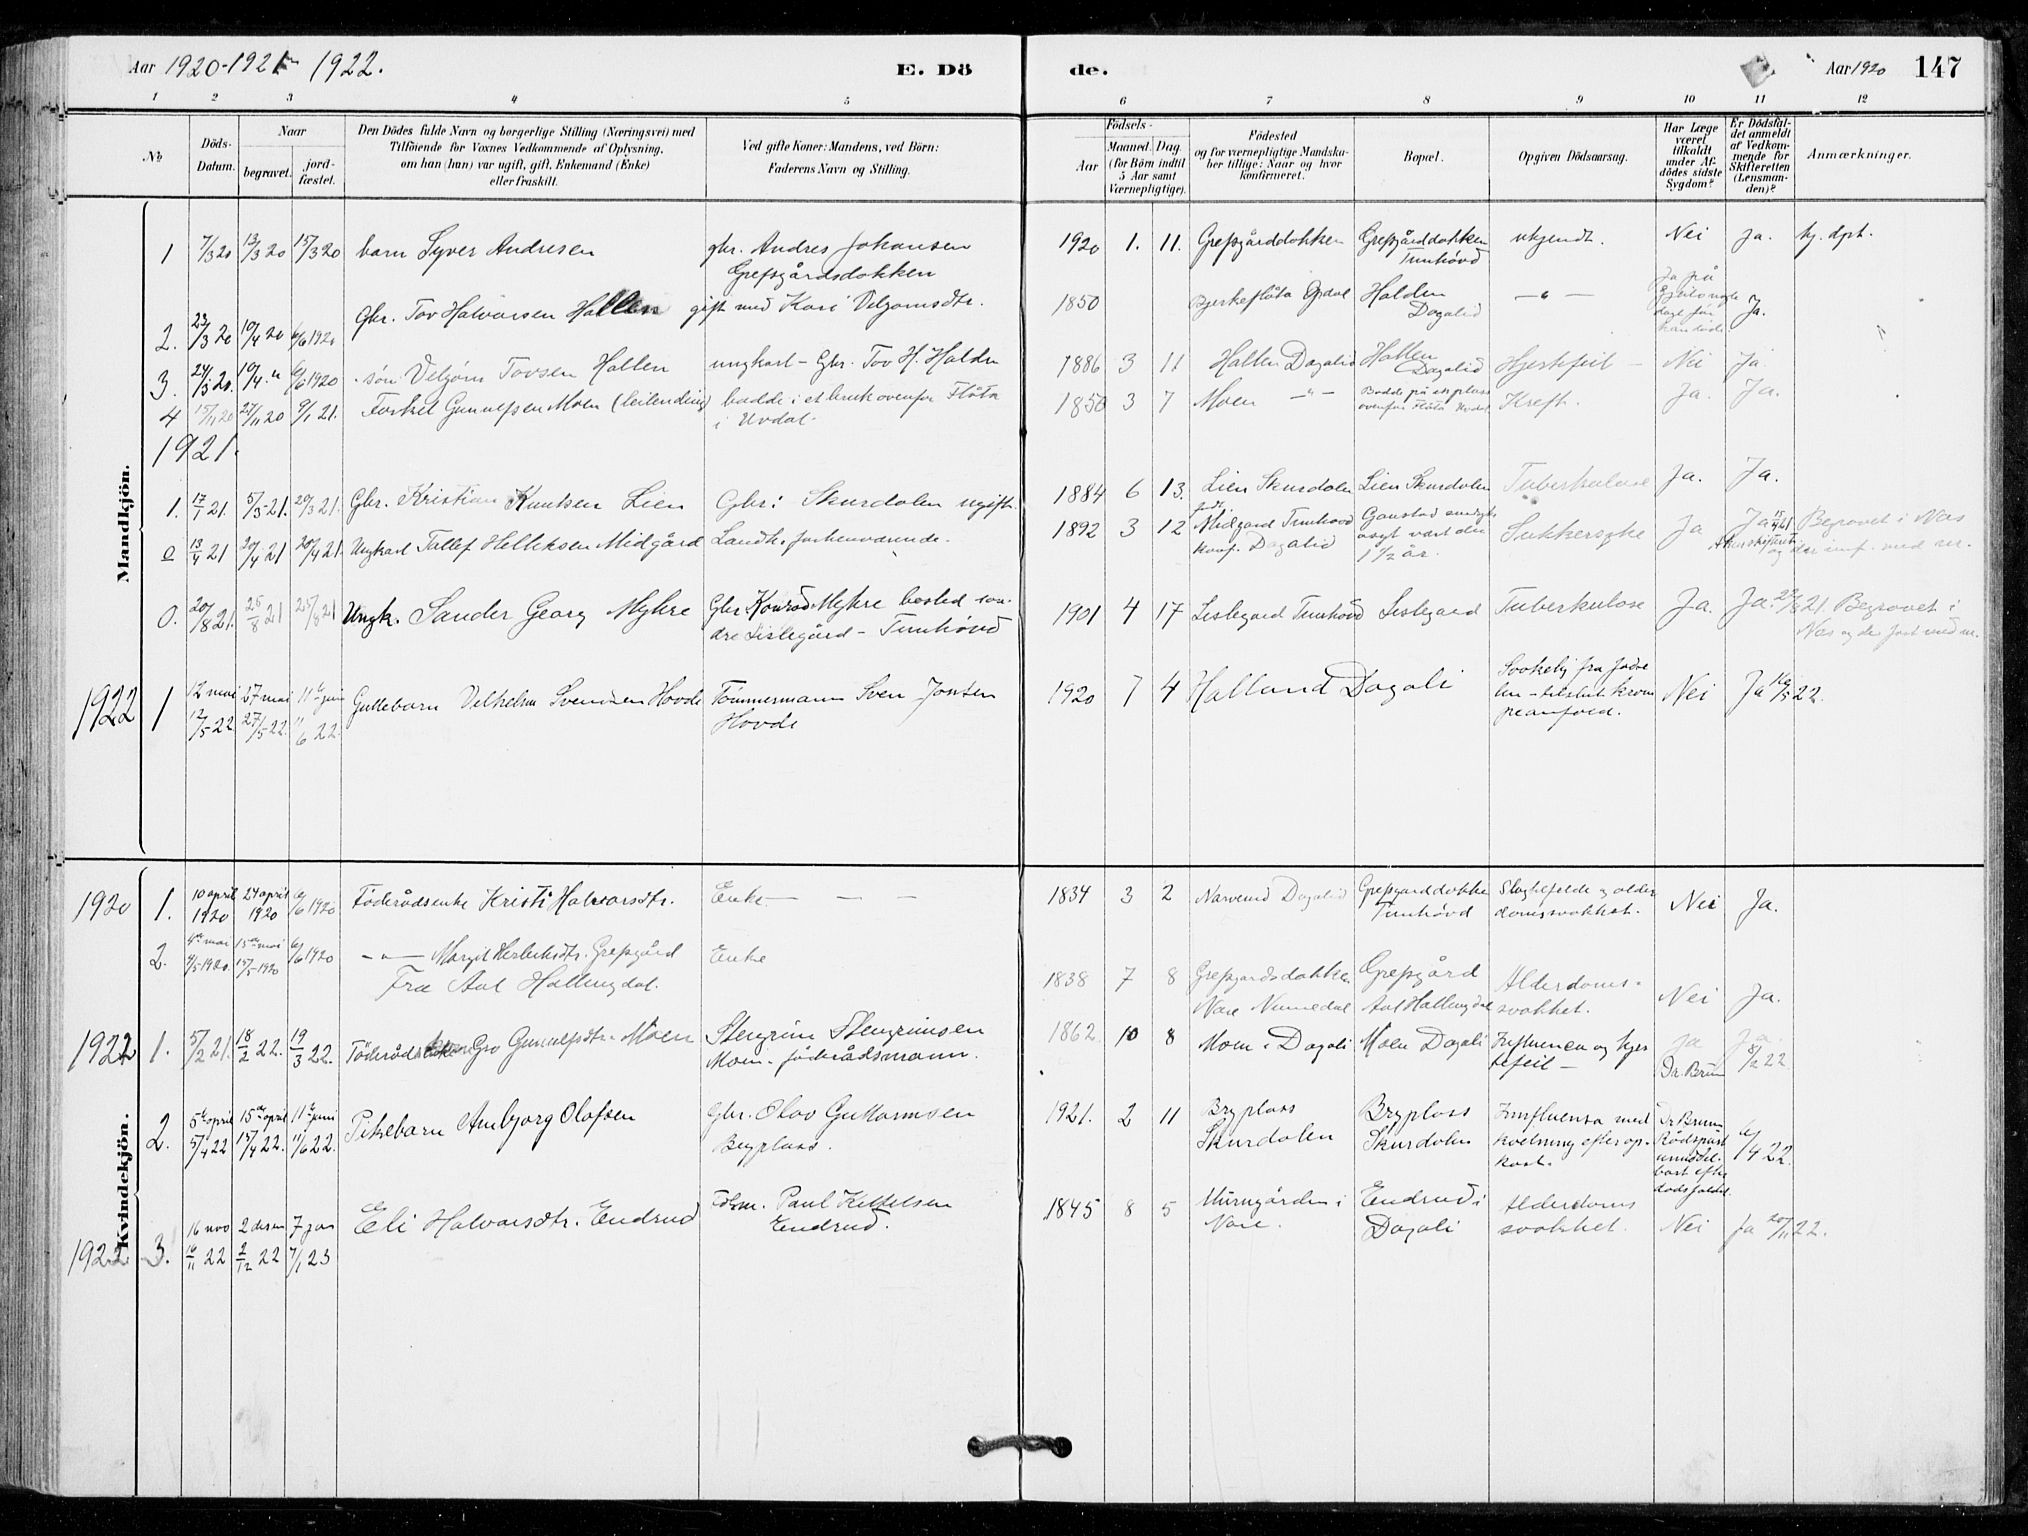 Aar 1920-1921-1922.
E. Dö
de.
Aar 1920
147
1 2 3 4 5 6 7 8 9 10 11 12
No
Döds-Datum.
Naar
begravet.
jord-fæstet.
Den Dödes fulde Navn og borgerlige Stilling (Næringsvei) med
Tilföiende for Voxnes Vedkommende af Oplysning,
om han (hun) var ugift, gift, Enkemand (Enke)
eller fraskilt.
Ved gifte Koner: Mandens, ved Börn:
Faderens Navn og Stilling.
Födsels-
Aar
Maaned. Dag.
(for Börn indtil
5 Aar samt
Værnepligtige).
Födested
og for værnepligtige Mandska-
ber tillige: Naar og hvor
konfirmeret.
Bopæl.
Opgiven Dödsaarsag.
Har Læge
været
tilkaldt
under Af-
dödes sidste
Sygdom?
Er Dödsfal-
det anmeldt
af Vedkom-
mende for
Skifteretten
(Lensman-
den)?
Anmærkninger.
Mandkjön.
1 7/3 20 13/3 20 15/3 20 barn Syver Andresen gbr. Andres Johansen 1920 1. 11. Grefsgårddokken Grefsgårddokken ukjendt. Nei Ja. hj. dpt.
Grefsgårdsdokken Tunhövd
2. 23/3 20 10/4 20 6/6 1920 Gbr. Tov Halvorsen Hallen gift med Kari Veljomsdtr. 1850 Bjerkeflåta Opdal Halden Dagalid — " — Ja på
Ja.
3. 24/3 20. 10/4 " 6/6 1920 sön Veljom Tovsen Hallen ungkarl - Gbr. Tov H. Halden 1886 3 11 Hallen Dagalid Hallen Dagalid Hjertefeil - Nei Ja.
4 15/11 20 27/11 20 9/1 21. Torkel Gunulfsen Moen (leilending) bodde i et bruk ovenfor Flåta 1850 3 7 Moen — " — Bodde på en plass Kreft. Ja. Ja.
i Uvdal. ovenfor Flåta Uvdal
1921.
1. 17/1 21. 5/3 21. 20/3 21. Gbr. Kristian Knutsen Lien Gbr i Skurdalen ugift. 1884 6 13. Lien Skurdalen Lien Skurdalen Tuberkulose Ja. Ja.
0 13/4 21 20/4 21 20/4 21. Ungkarl Tallef Helleksen Midgård Landh. forhenværende. 1892 3 12 Midgard Tunhövd Sukkersyke Ja Ja 15/4 21 Begravet i Næs
konf. Dagalid 1 1/2 år.
0. 20/8 21. 25/8 21 25/8 21 Ungk. Sander Georg Myhre Gbr. Konrad Myhre bosted søn- 1901 4 17 Lislegard Tunhövd Lislegard Tuberkulose Ja. Ja. 22/8 21. Begravet i
dre Lislegård - Tunhövd Næs og der
1922 1 12 mai 27 mai 11te juni Guttebarn Velhelm Svendsen Hovde Tömmermann Sven Jonsen 1920 7 4 Halland Dagali Svakelig fra fødse Nei Ja 16/5 22.
12/5 22 27/5 22. 11/6 22. Hovde len - tilstøtt kram
peanfald.
Kvindekjön.
1920 1. 10 april 24 april 6/6 1920 Föderådsenke Kristi Halvorsdtr. Enke — — — 1834 3 2 Narverud Dagalid Grefsgarddokka Slagtilfelde og alder Nei Ja.
1920 1920 Tunhövd domssvakhet.
2. 4de mai 15de mai 6/6 1920 — " — Margit Herleiksdtr. Grefsgård Enke 1838 7 8 Grefsgardsdokken Grefsgård Alderdoms- Nei Ja.
4/5 1920. 15/5 1920 Fra Aal Hallingdal. Nore Numedal Aal Hallingdal svakhet.
1922 1. 5/2 21. 18/2 22. 19/3 22. Föderåds Gro Gunulfsdtr. Moen Stengrim Stengrimsen 1862 10 8 Moen i Dagali Moen Dagali Influenca og hjer ja Ja.
Moen - föderådsmann. tefeil — Dr. Brun 8/2 22
2. 5te april 15de april 11te juni Pikebarn Ambjorg Olafsen Gbr. Olav Guttormsen 1921. 2 11 Bryplass Bryplass Innfluensa med Dr Brun 6/4 22.
5/4 22 15/4 22. 11/6 22. Bryplass. Skurdalen Skurdalen kvelning efter op-
kast.
1922 3. 16 nov 2 desem 7 jan Eli Halvorsdtr. Endrud Fdm. Paul Kittelsen 1845 8 5 Murugården i Endrud i Alderdoms Nei Ja 20/11 22.
16/11 22 2/12 22 7/1 23 Endrud. Nore. Dagali svakhet.